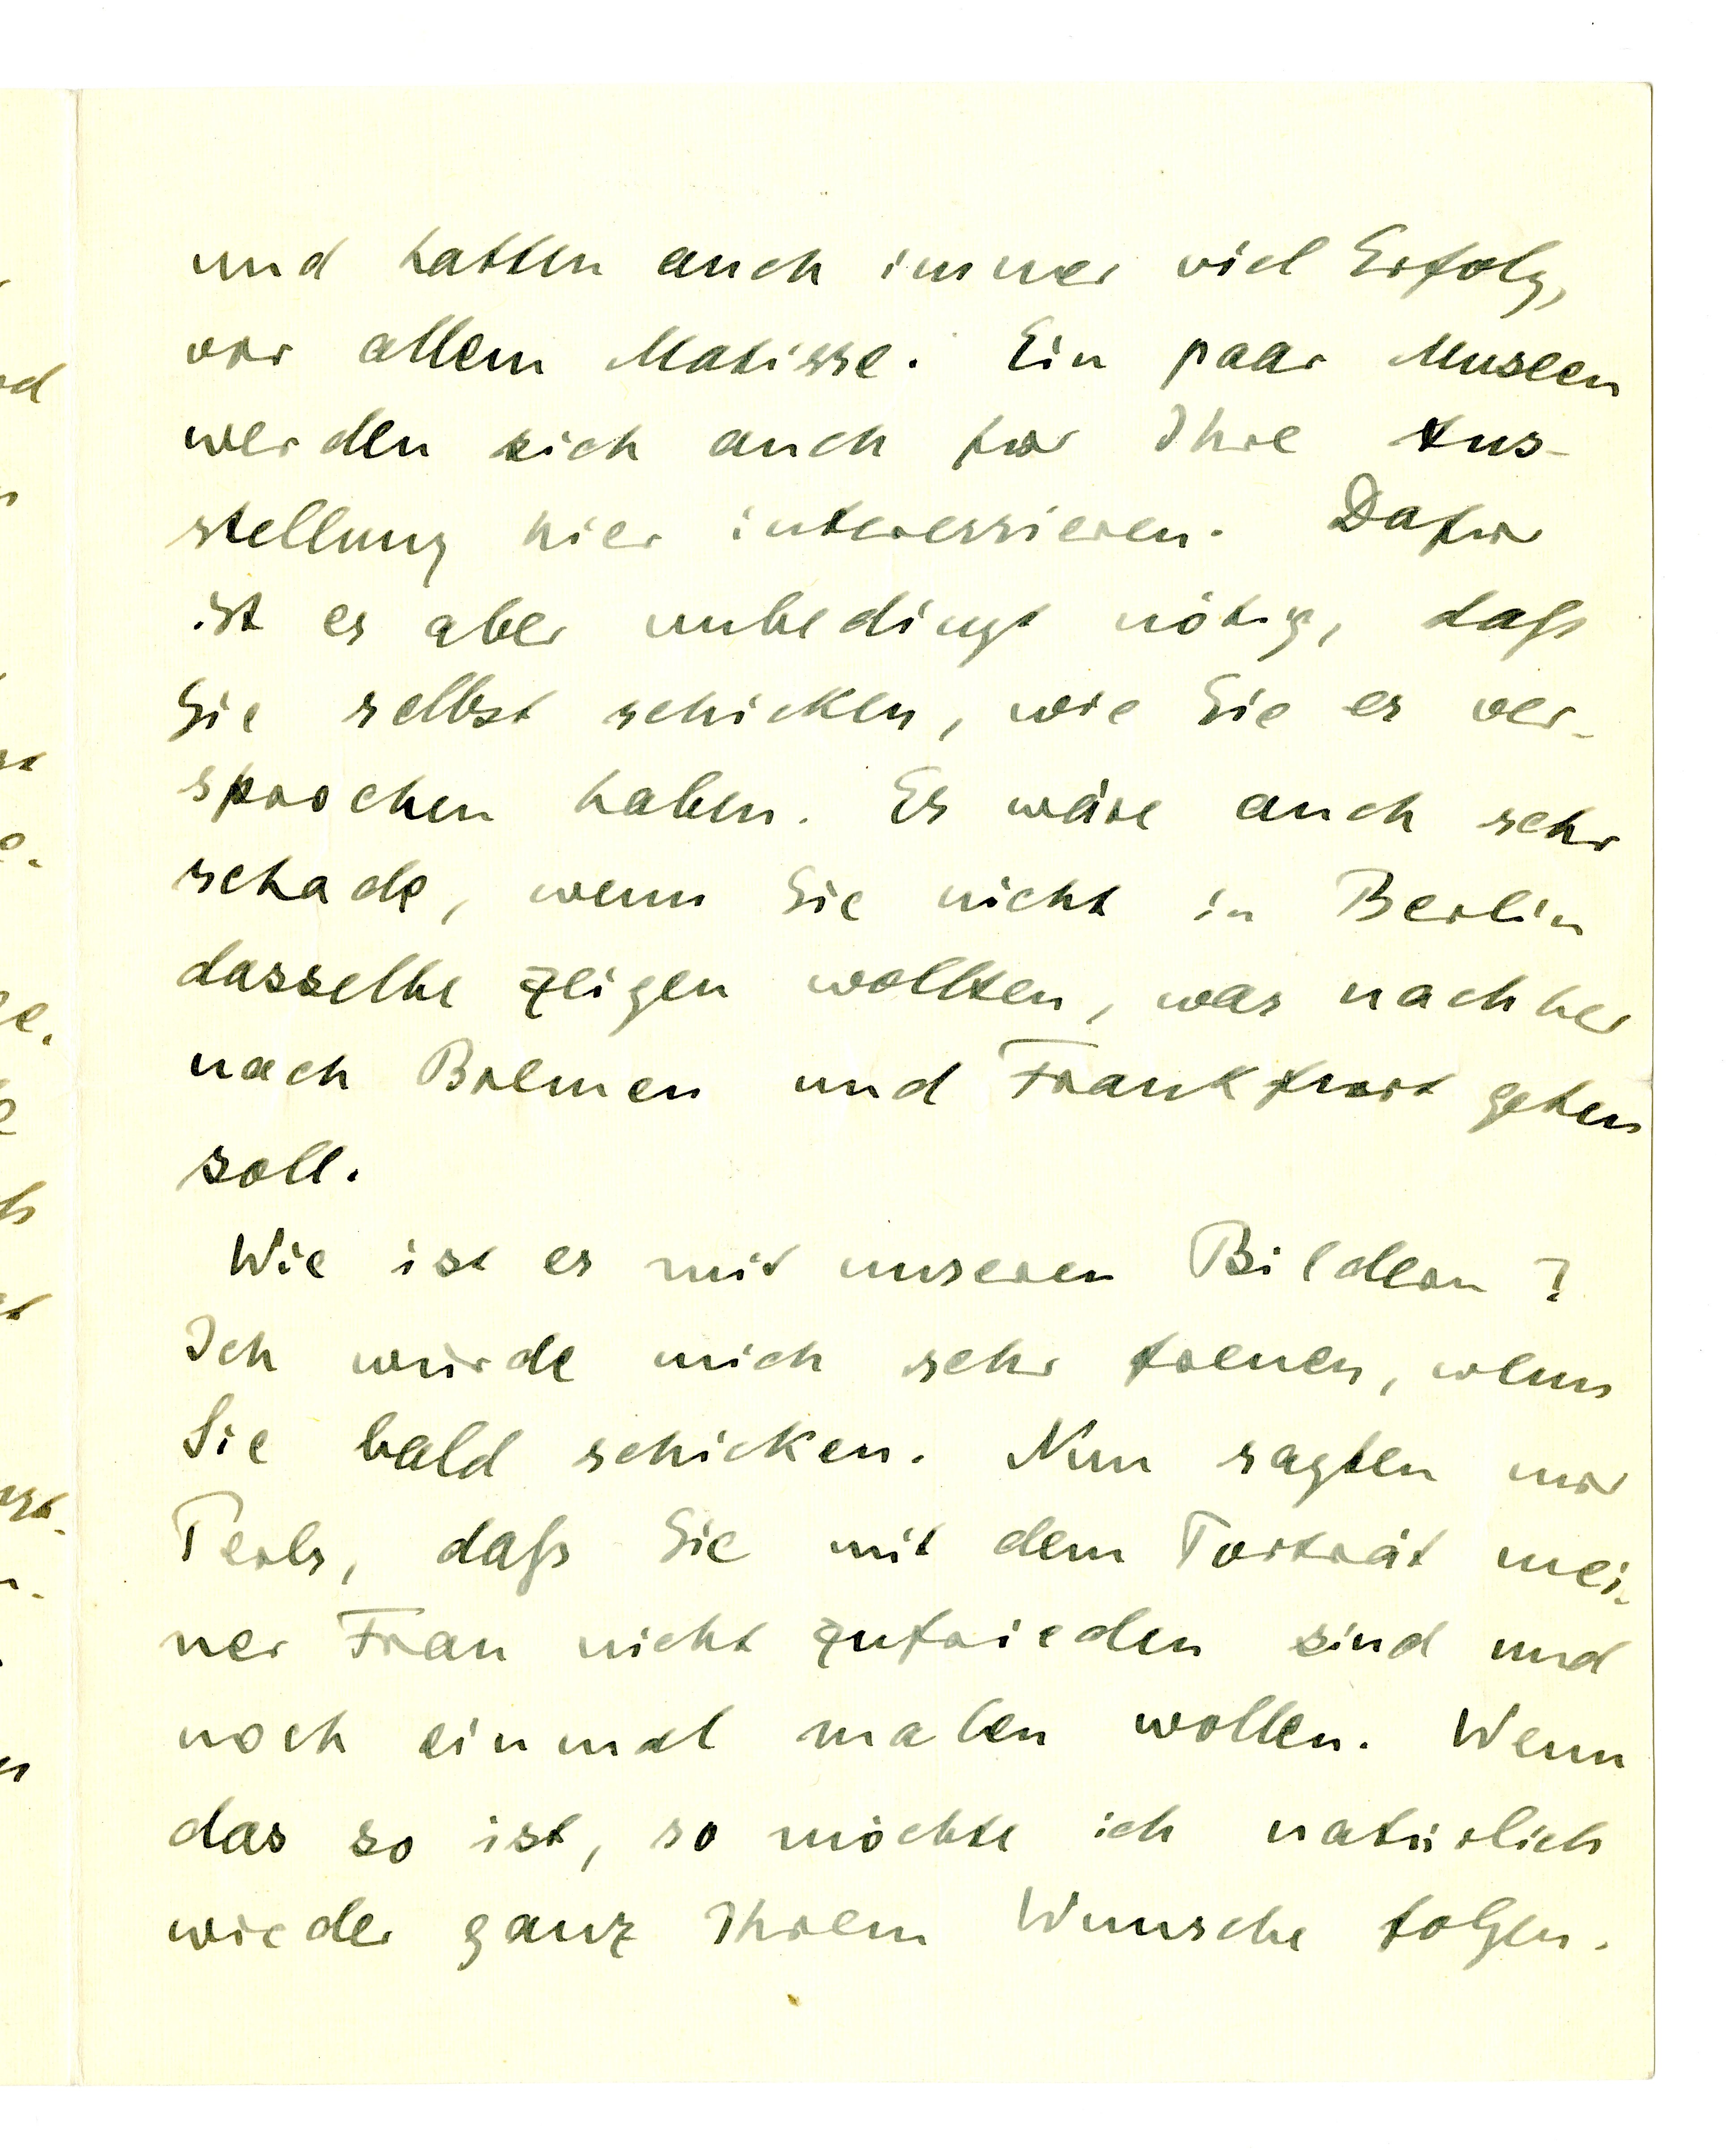 und hatten auch immer viel Erfolg,
vor allem Matisse. Ein paar Museen
werden sich auch für Ihre Aus-
stellung hier interessieren. Dafür
ist es aber unbedingt nötig, daß
Sie selbst schicken, wie Sie es ver-
sprochen haben. Es wäre auch sehr
schade, wenn Sie nicht in Berlin
dasselbe zeigen wollten, was nachher
nach Bremen und Frankfurt gehen
soll.
Wie ist es mit unseren Bildern?
Ich würde mich sehr freuen, wenn
Sie bald schicken. Nun sagten mir
Perls, daß Sie mit dem Porträt mei-
ner Frau nicht zufrieden sind und
noch einmal malen wollen. Wenn
das so ist, so möchte ich natürlich
wieder ganz Ihrem Wunsche folgen.